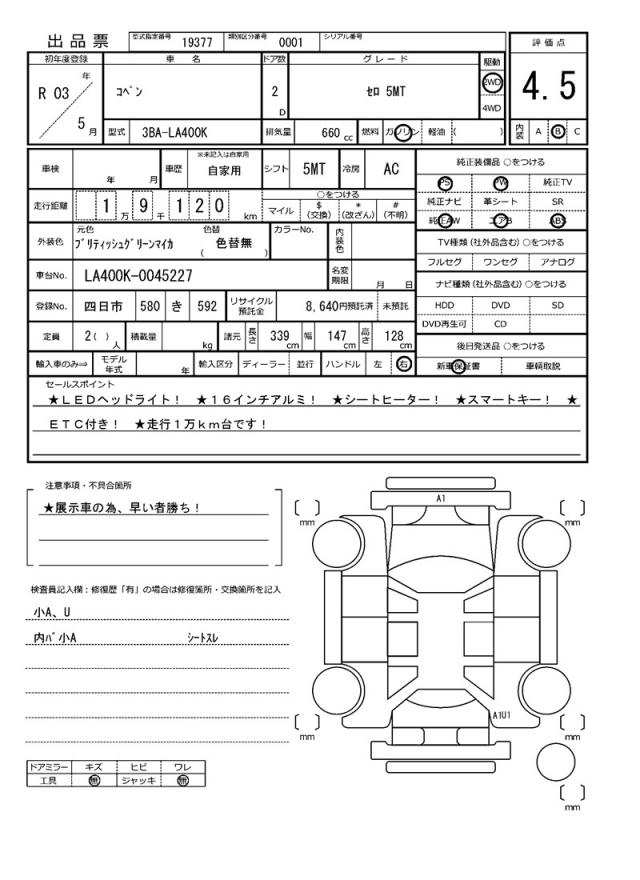 出品票
型式指定番号 19377 類別区分番号 0001 シリアル番号
評価点
4.5
内装 A B C
初年度登録 車名 ドア数 グレード 駆動
R 03 年 5 月
コペン 2 D セロ 5MT 2WD 4WD
型式 3BA-LA400K 排気量 660 cc 燃料 ガソリン 軽油 ( )
車検 年 月 車歴 ※未記入は自家用 自家用 シフト 5MT 冷房 AC
走行距離 1 万 9 千 1 2 0 km
○をつける
マイル $ (交換) * (改ざん) # (不明)
外装色 元色 ブリティッシュグリーンマイカ 色替 色替無 ( ) カラーNo. 内装色
車台No. LA400K-0045227 名変期限 月 日
登録No. 四日市 580 き 592 リサイクル預託金 8,640円預託済 未預託
定員 2( ) 人 積載量 kg 諸元 長さ 339 cm 幅 147 cm 高さ 128 cm
輸入車のみ⇒ モデル年式 年 輸入区分 ディーラー 並行 ハンドル 左 右
純正装備品 ○をつける
PS PW 純正TV
純正ナビ 革シート SR
純正AW エアB ABS
TV種類(社外品含む) ○をつける
フルセグ ワンセグ アナログ
ナビ種類(社外品含む) ○をつける
HDD DVD SD
DVD再生可 CD
後日発送品 ○をつける
新車保証書 車輌取説
セールスポイント
★LEDヘッドライト! ★16インチアルミ! ★シートヒーター! ★スマートキー! ★
ETC付き! ★走行1万km台です!
注意事項・不具合箇所
★展示車の為、早い者勝ち!
検査員記入欄:修復歴「有」の場合は修復箇所・交換箇所を記入
小A、U
内バ小A シートスレ
ドアミラー キズ ヒビ ワレ
工具 無 ジャッキ 無
A1
mm
mm
A1U1
mm
mm
mm